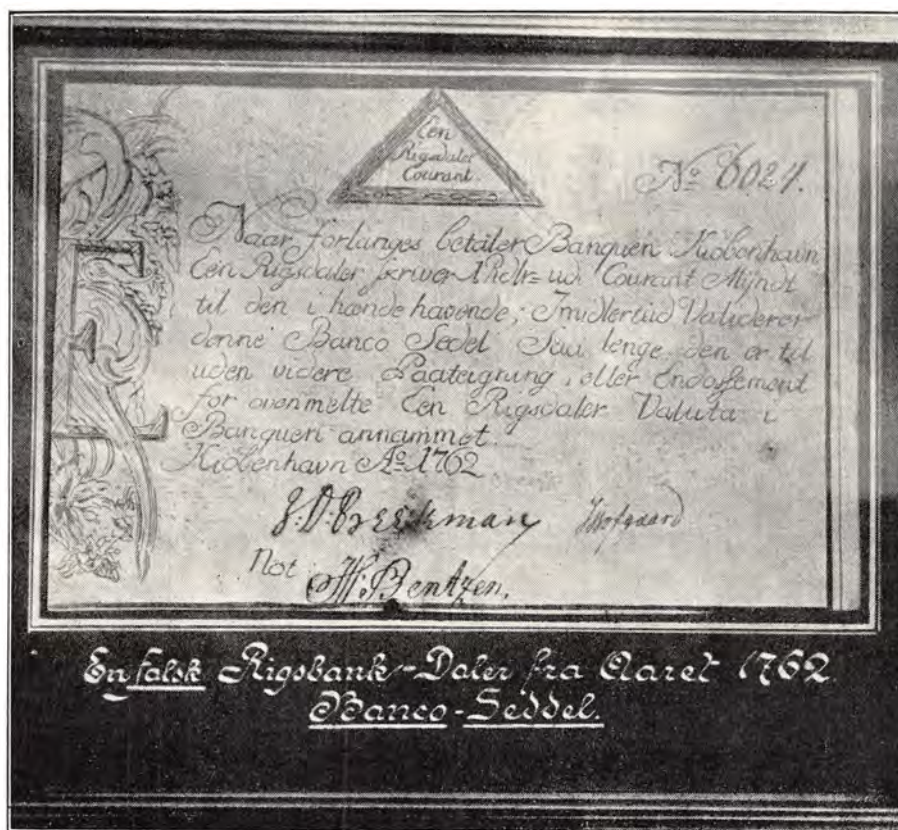 Een
Rigsdaler
Courant.
No 6024.
Naar forlanges betaler Banquen i Kiøbenhavn
Een Rigsdaler 1 Rdlr ud Courant Myndt
til den i hænde havende, Imidlertiid Validerer
denne Banco Sedel Saa lenge den er til
uden videre Paategning, eller Endossement
for ovenmelte Een Rigsdaler Valuta i
Banquen annammet.
Kiøbenhavn Ao 1762
Hofgaard
Not
Bentzen.
En falsk Rigsbank-Daler fra Aaret 1762
Banco-Seddel.